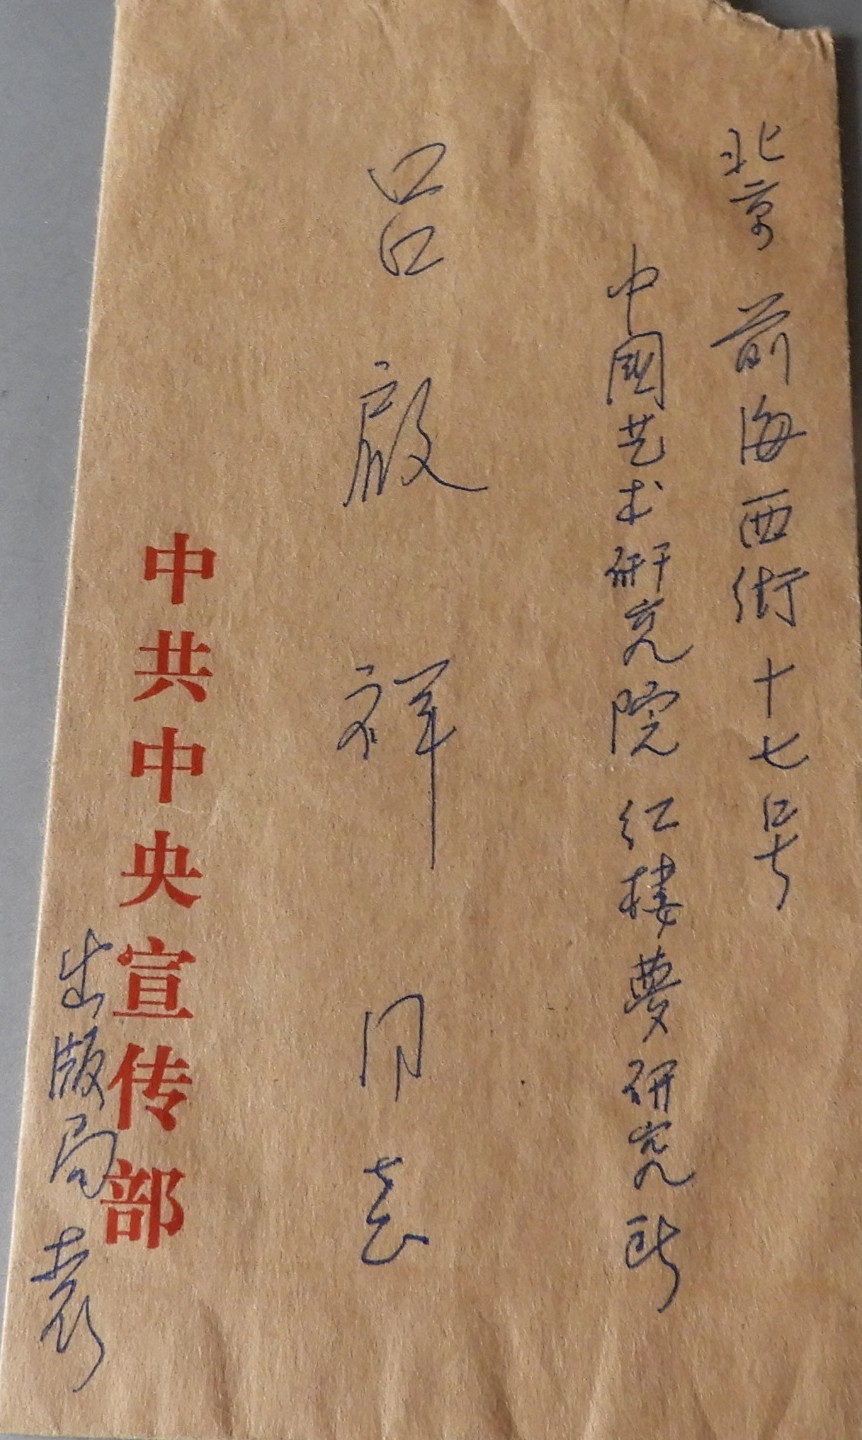 北京 前海西街十七号
中國艺术研究院红楼夢研究所
吕启祥同志
中共中央宣传部
出版局 袁